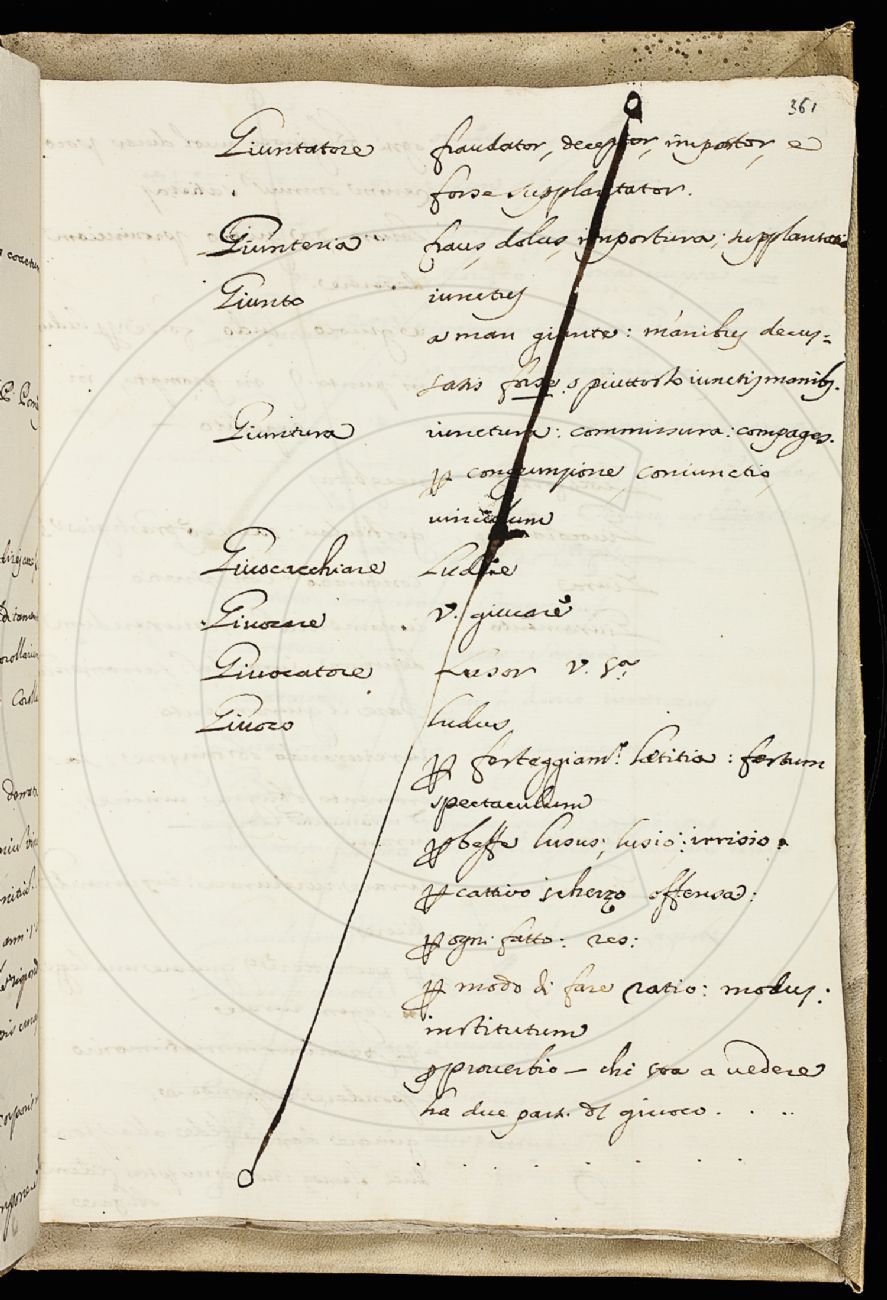 361
Giuntatore fraudator, deceptor, impostor, e
forse supplantator.
Giunteria fraus, dolus, impostura; supplantatio
Giunto iunctus
a man giunte: manibus decus=
satis forse, o piuttosto iunctis manib.
Giuntura iunctura: commissura: compages.
p congiunzione, coniunctio,
vinculum
Giuocacchiare Ludere
Giuocare v. giucare
Giuocatore Lusor v. sa
Giuoco ludus
p festeggiamto. lætitia: festum
spectaculum
p beffe lusus; lusio; irrisio.
p cattivo scherzo offensa:
p ogni fatto: res:
p modo di fare ratio: modus:
institutum
proverbio — chi sta a vedere
ha due part. dl giuoco. . . .